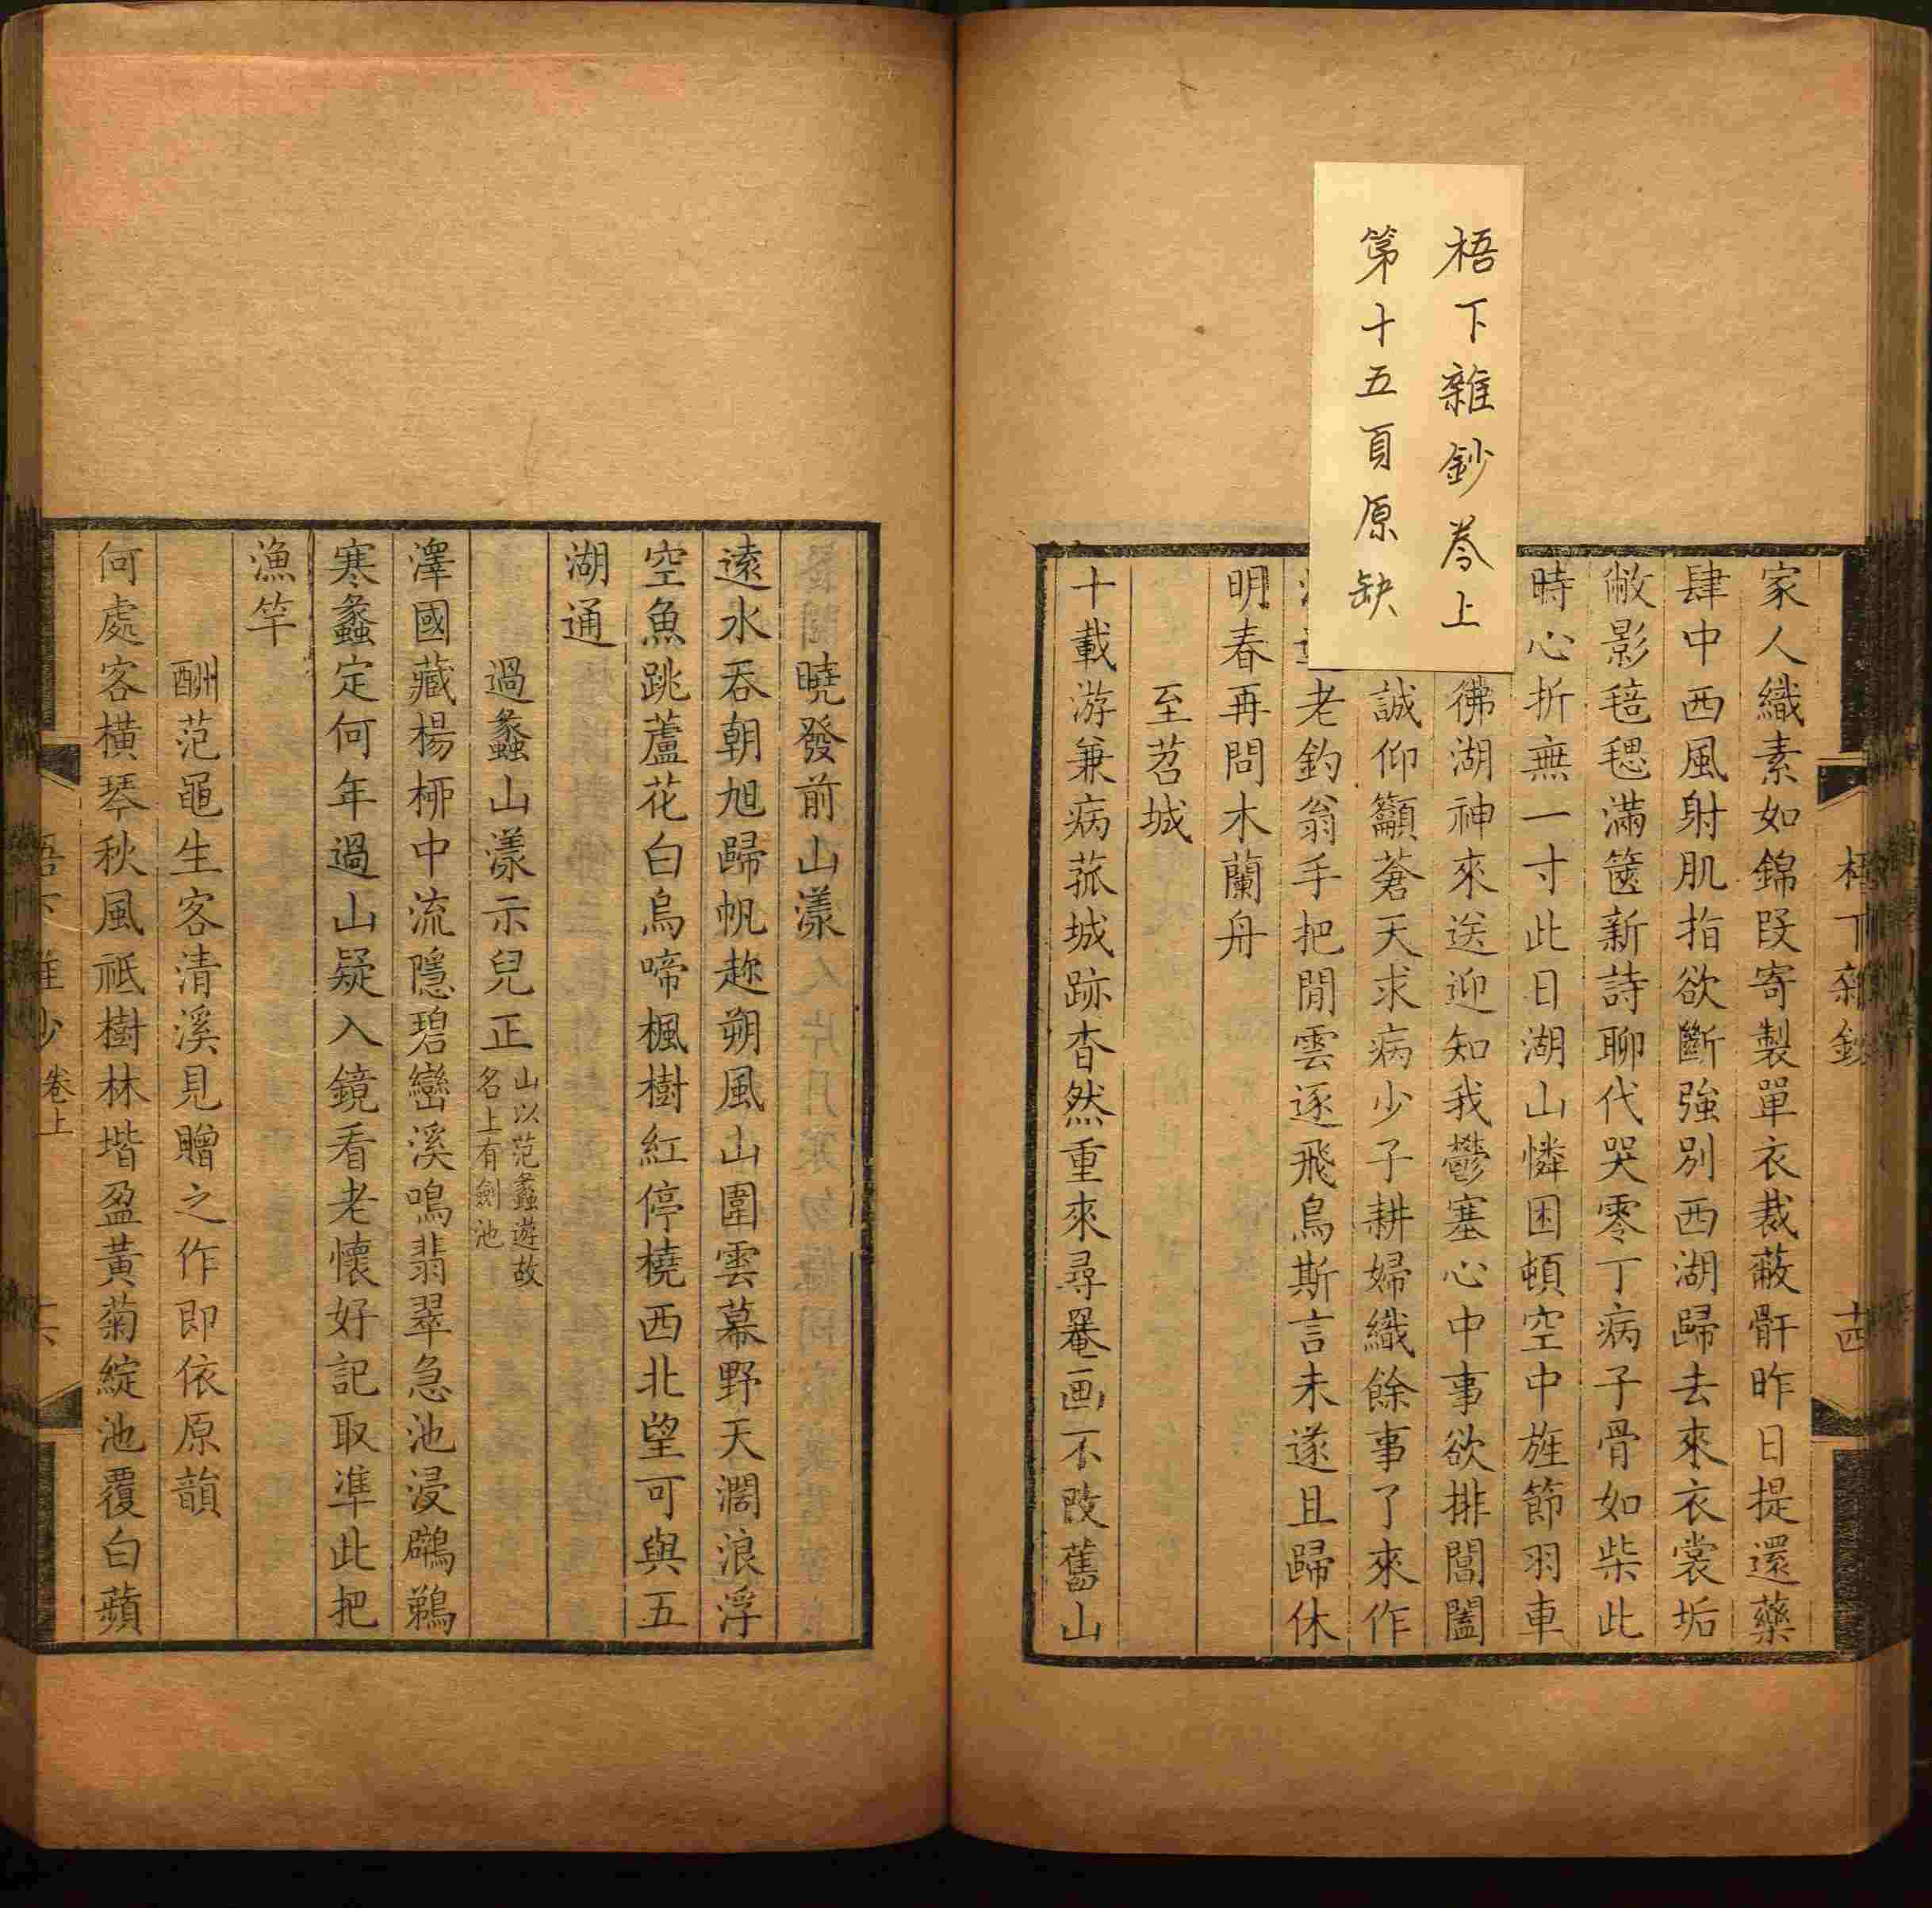 梧下雜鈔卷上
第十五頁原缺
家人織素如錦段寄製單衣裁蔽骭昨日提還藥
肆中西風射肌指欲斷強別西湖歸去來衣裳垢
敝影毰毸滿篋新詩聊代哭零丁病子骨如柴此
時心折無一寸此日湖山憐困頓空中旌節羽車
彿湖神來送迎知我鬱塞心中事欲排閶闔
誠仰籲蒼天求病少子耕婦織餘事了來作
老釣翁手把閒雲逐飛鳥斯言未遂且歸休
明春再問木蘭舟
至苕城
十載游兼病菰城跡杳然重來尋罨画不改舊山
梧下雜鈔
十四
曉發前山漾
遠水吞朝旭歸帆趂朔風山圍雲幕野天濶浪浮
空魚跳蘆花白烏啼楓樹紅停橈西北望可與五
湖通
過蠡山漾示兒正山以范蠡遊故
名上有劍池
澤國藏楊桺中流隱碧巒溪鳴翡翠急池浸鸊鵜
寒蠡定何年過山疑入鏡看老懷好記取準此把
漁竿
酬范黽生客清溪見贈之作即依原韻
何處客橫琴秋風祗樹林堦盈黃菊綻池覆白蘋
梧下雜鈔卷上
十六